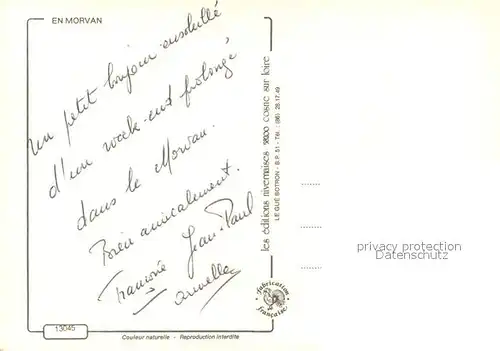 EN MORVAN
Un petit bonjour ensoleillé
d'un week-end prolongé
dans le Morvan.
Bien amicalement.
Jean-Paul
Françoise
Armelle
13045
Couleur naturelle - Reproduction interdite
les éditions nivernaises 58200 cosne sur loire
LE GUÉ BOTRON - B.P. 51 - Tél. : (86) 28.17.49
Fabrication
française
privacy protection
Datenschutz